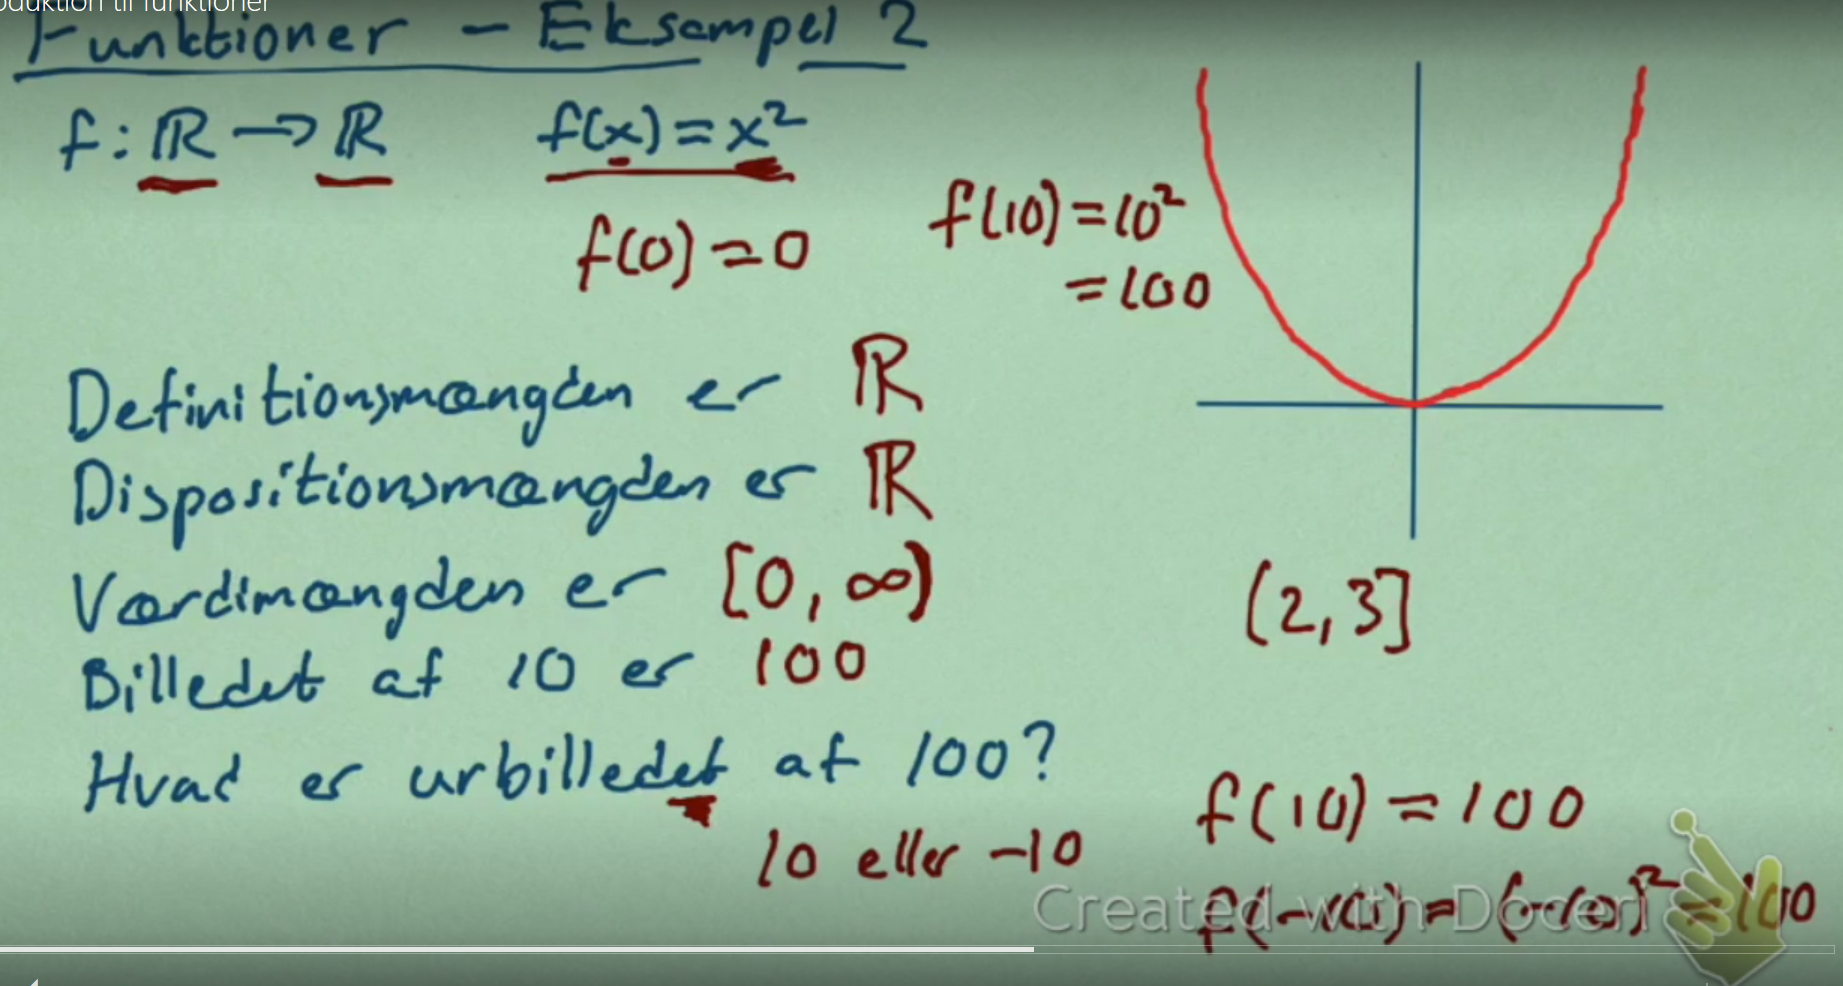 oduktion til funktioner
Funktioner - Eksempel 2
f: ℝ → ℝ f(x) = x²
f(0) = 0
f(10) = 10²
= 100
Definitionsmængden er ℝ
Dispositionsmængden er ℝ
Værdimængden er [0, ∞)
(2, 3]
Billedet af 10 er 100
Hvad er urbilledet af 100?
10 eller -10
f(10) = 100
f(-10) = (-10)² = 100
Created with Doceri